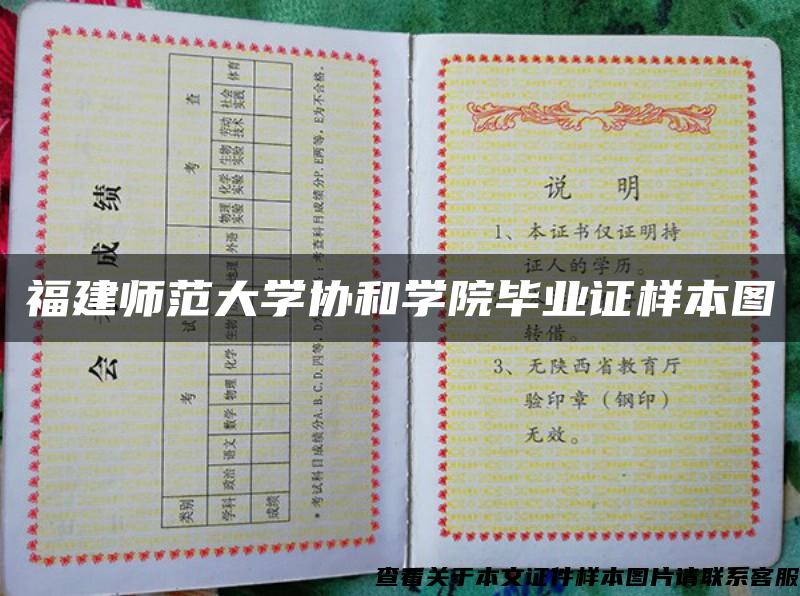 会考成绩
类别 考 试 考 查
学科 政治 语文 数学 物理 化学 生物 地理 外语 物理实验 化学实验 生物实验 劳动技术 社会实践 体育
成绩
*考试科目成绩分A.B.C.D.四等，D为
：考查科目成绩分P、E两等，E为不合格。
说 明
1、本证书仅证明持
证人的学历。
福建师范大学协和学院毕业证样本图
转借。
3、无陕西省教育厅
验印章（钢印）
无效。
查看关于本文证件样本图片请联系客服